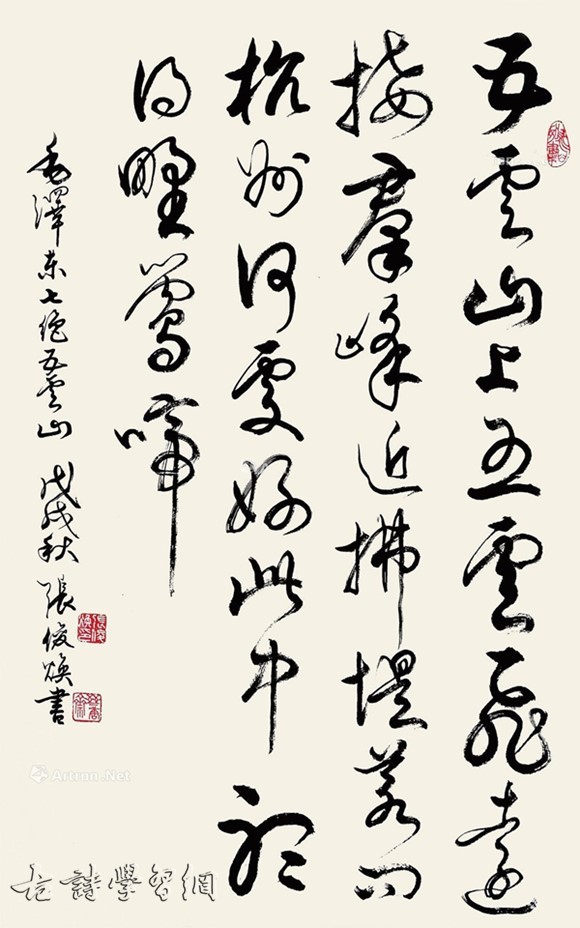 五雲山上五雲飛遠
接羣峰近拂堤若问
杭州何處好此中聽
得野鶯啼
毛澤東七绝五雲山 戊戌秋 張俊焕書
Artron.Net
古詩學習網